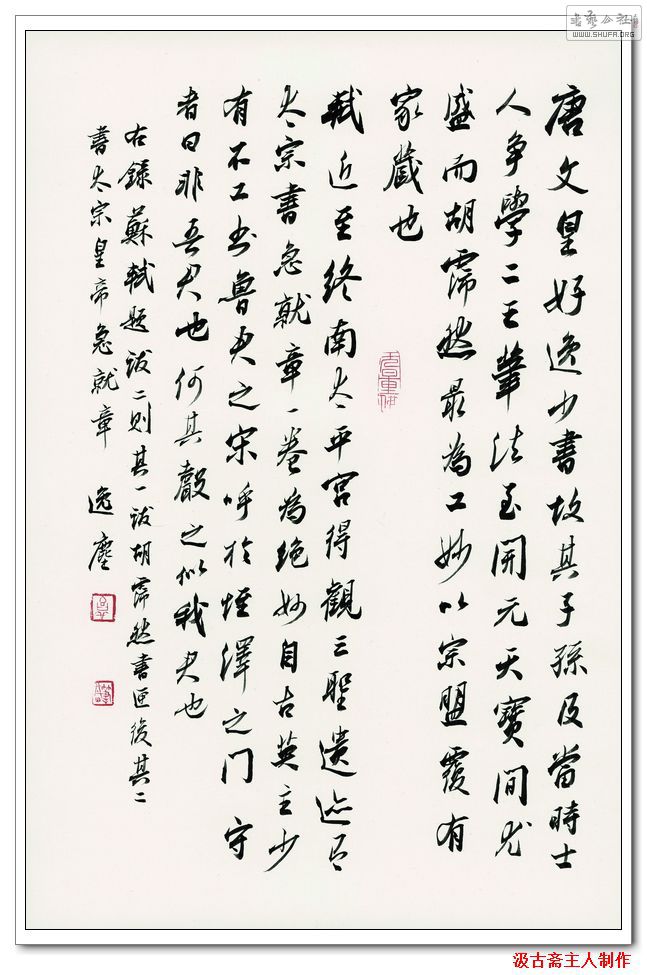 唐文皇好逸少書故其子孫及當時士
人争學二王筆法至開元天寶間尤
盛而胡霈然最為工妙以宗盟覆有
家藏也
軾近至終南太平宮得觀三聖遺迹有
太宗書急就章一卷為絶妙自古英主少
有不工书魯君之宋呼於垤澤之門守
者曰非吾君也何其聲之似我君也
右錄蘇軾題跋二則其一跋胡霈然書匣後其二
書太宗皇帝急就章 逸塵
WWW.SHUFA.ORG
汲古斋主人制作